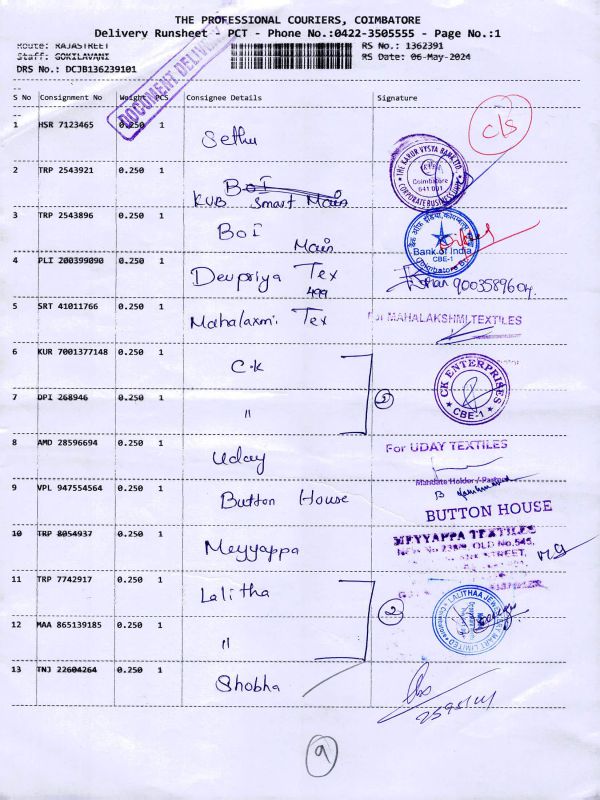 THE PROFESSIONAL COURIERS, COIMBATORE
Delivery Runsheet - PCT - Phone No.:0422-3505555 - Page No.:1
Route: RAJASTREET
RS No.: 1362391
Staff: GOKILAVANI
RS Date: 06-May-2024
DRS No.: DCJB136239101
DOCUMENT DELIVERY
S No Consignment No Weight PCS Consignee Details Signature
c/s
1 HSR 7123465 0.250 1 Sethu
2 TRP 2543921 0.250 1 BOI
KVB Smart Main
THE KARUR VYSYA BANK LTD.
Coimbatore
641 001
CORPORATE BUSINESS
3 TRP 2543896 0.250 1 BOI
Main
Bank of India
CBE-1
Coimbatore Br.
4 PLI 200399090 0.250 1 Devpriya Tex
499
9003589604.
5 SRT 41011766 0.250 1 Mahalaxmi Tex
For MAHALAKSHMI TEXTILES
6 KUR 7001377148 0.250 1 C.K
CK ENTERPRISES
CBE-1
7 DPI 268946 0.250 1 "
8 AMD 28596694 0.250 1 Uday
For UDAY TEXTILES
Mandate Holder / Partner
9 VPL 947554564 0.250 1 Button House
BUTTON HOUSE
10 TRP 8054937 0.250 1 Meyyappa
MEYYAPPA TEXTILES
OLD No.545,
STREET,
11 TRP 7742917 0.250 1 Lalitha
2
LALITHAA JEWELLERY MART LIMITED
12 MAA 865139185 0.250 1 "
13 TNJ 22604264 0.250 1 Shobha
9